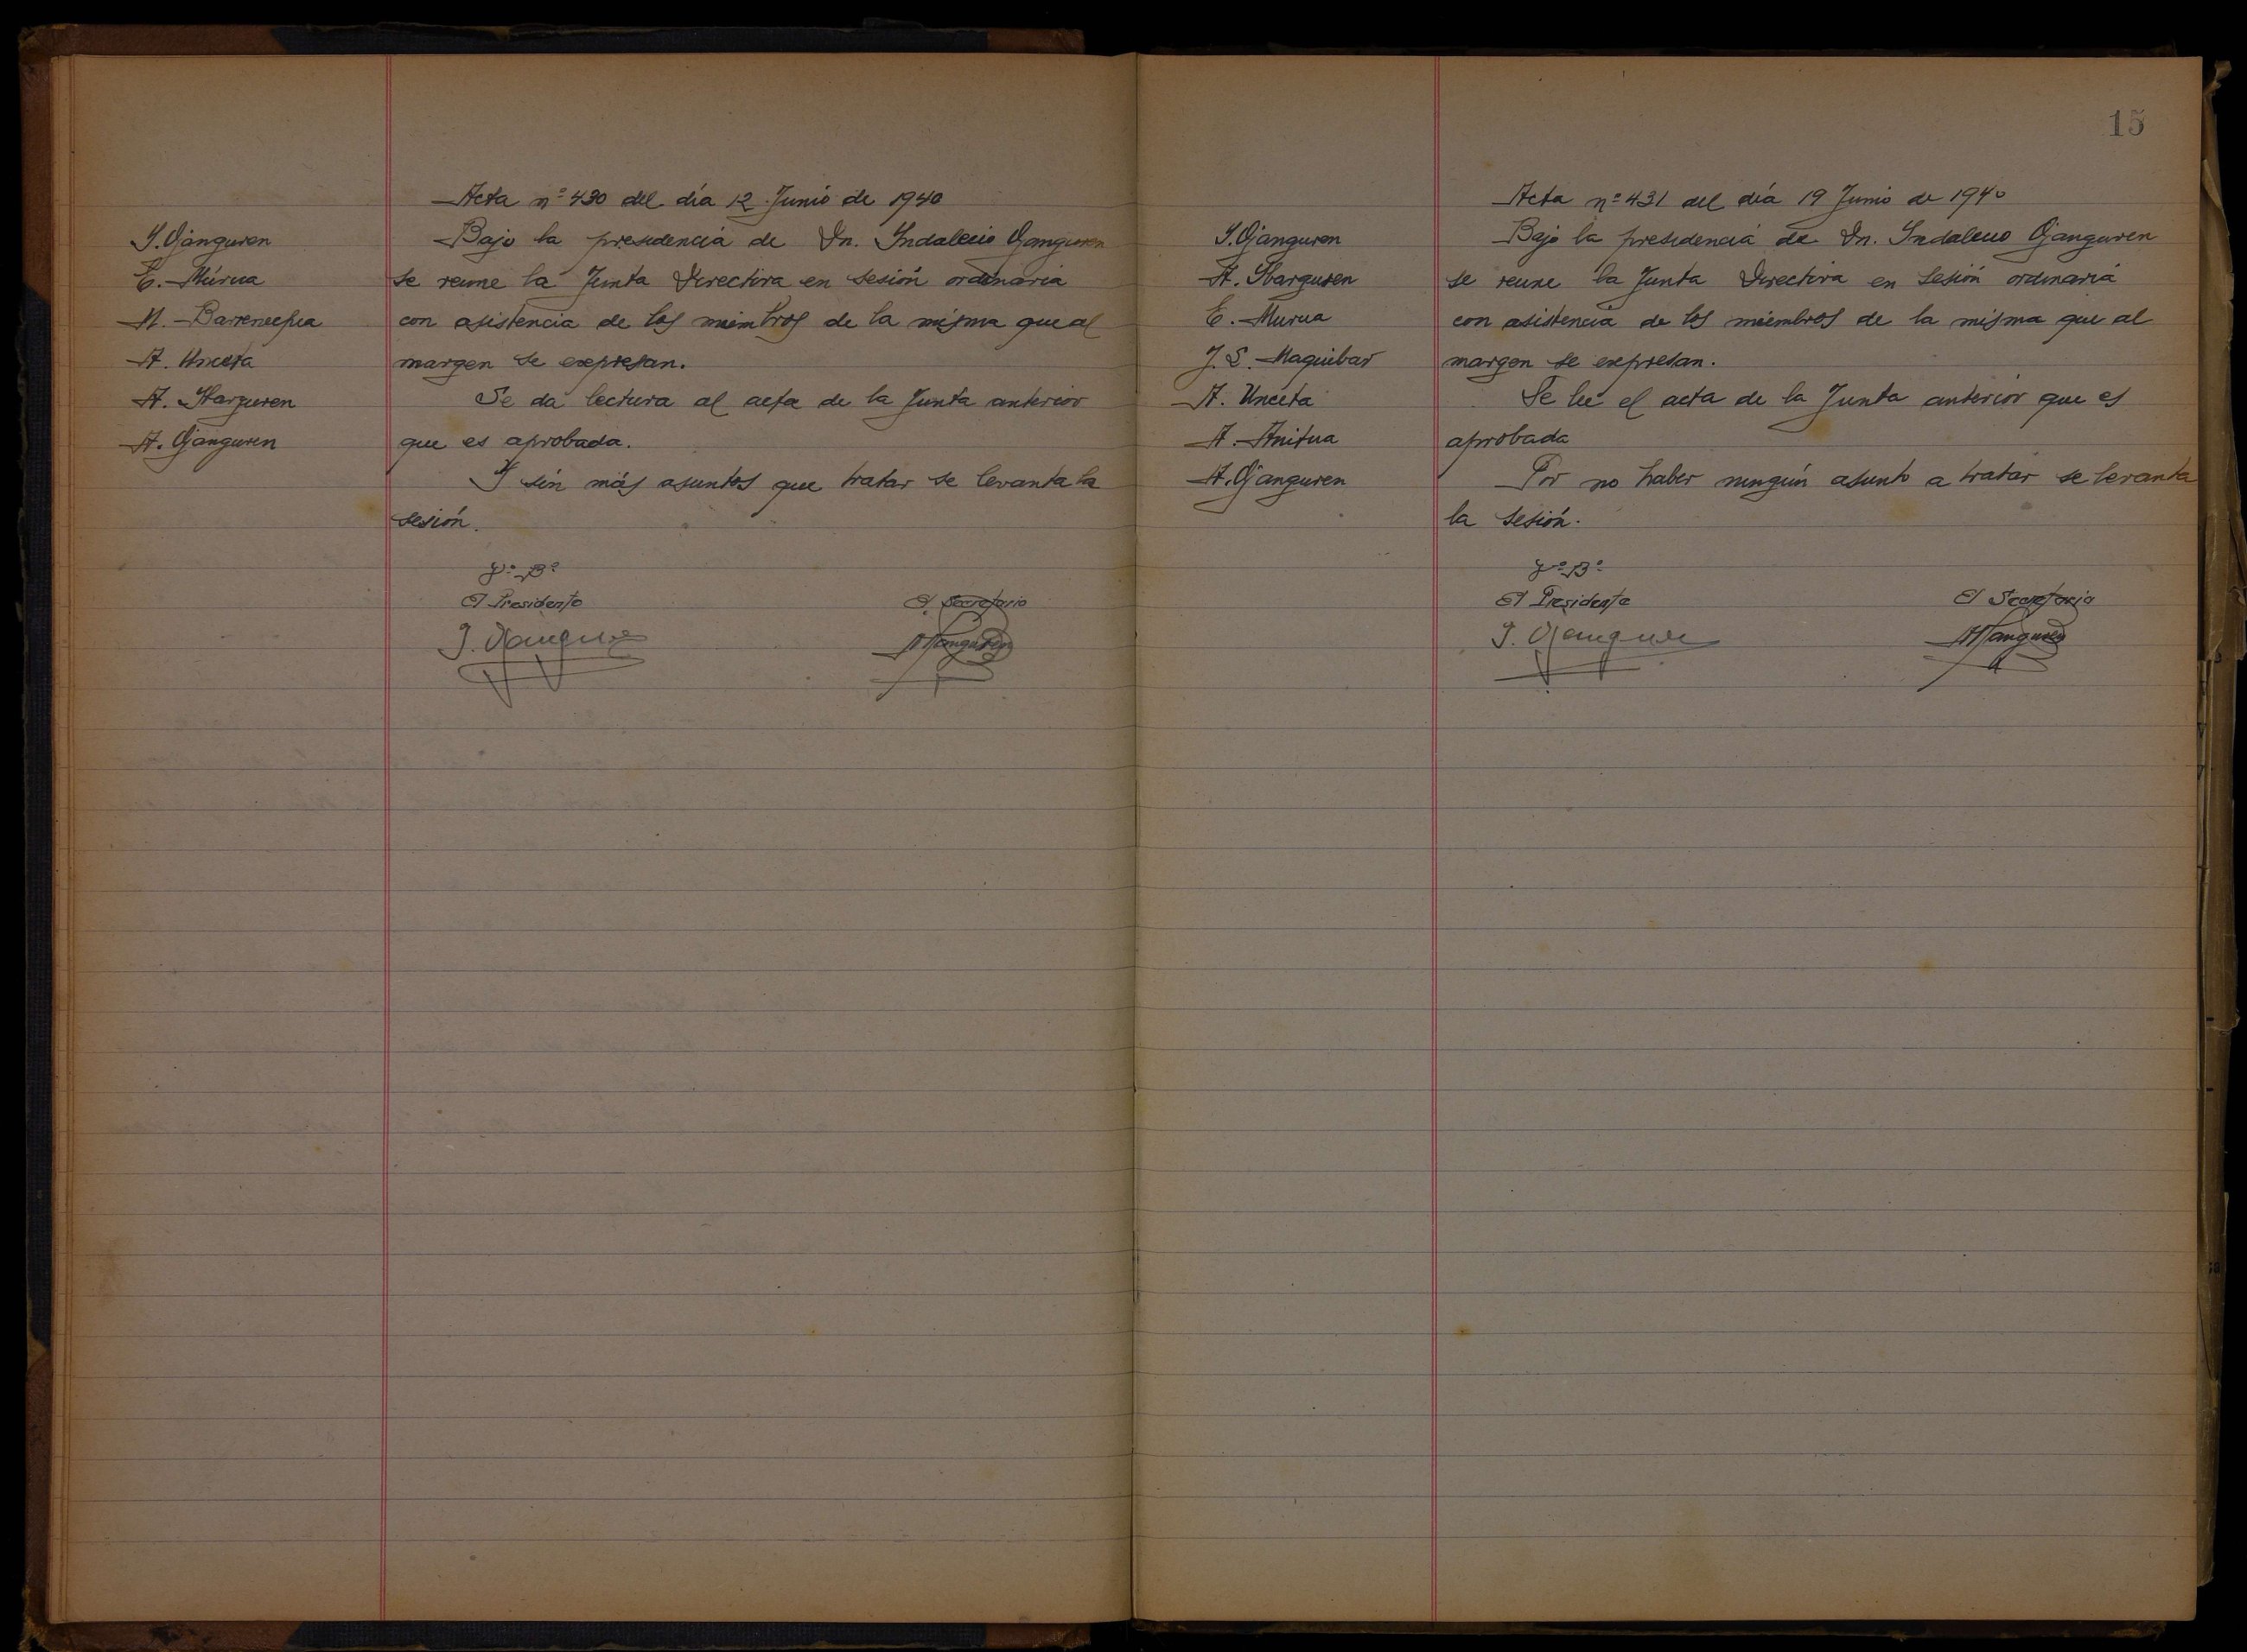 Acta nº 430 del día 12 Junio de 1940
I. Ojanguren
E. Múrua
M. Barrenechea
A. Unceta
A. Ibarguren
A. Ojanguren
Bajo la presidencia de Dn. Indalecio Ojanguren
se reune la Junta Directiva en sesión ordinaria
con asistencia de los miembros de la misma que al
margen se expresan.
Se dá lectura al acta de la Junta anterior
que es aprobada.
Y sin más asuntos que tratar se levanta la
sesión.
Vº Bº
El Presidente
El Secretario
I. Ojanguren
A Ojanguren
15
Acta nº 431 del día 19 Junio de 1940
I. Ojanguren
A. Ibarguren
E. Murua
J. S. Maguibar
A. Unceta
A. Anitua
A. Ojanguren
Bajo la presidencia de Dn. Indalecio Ojanguren
se reune la Junta Directiva en sesión ordinaria
con asistencia de los miembros de la misma que al
margen se expresan.
Se lee el acta de la Junta anterior que es
aprobada
Por no haber ningún asunto a tratar se levanta
la sesión.
Vº Bº
El Presidente
El Secretario
I. Ojanguren
A Ojanguren